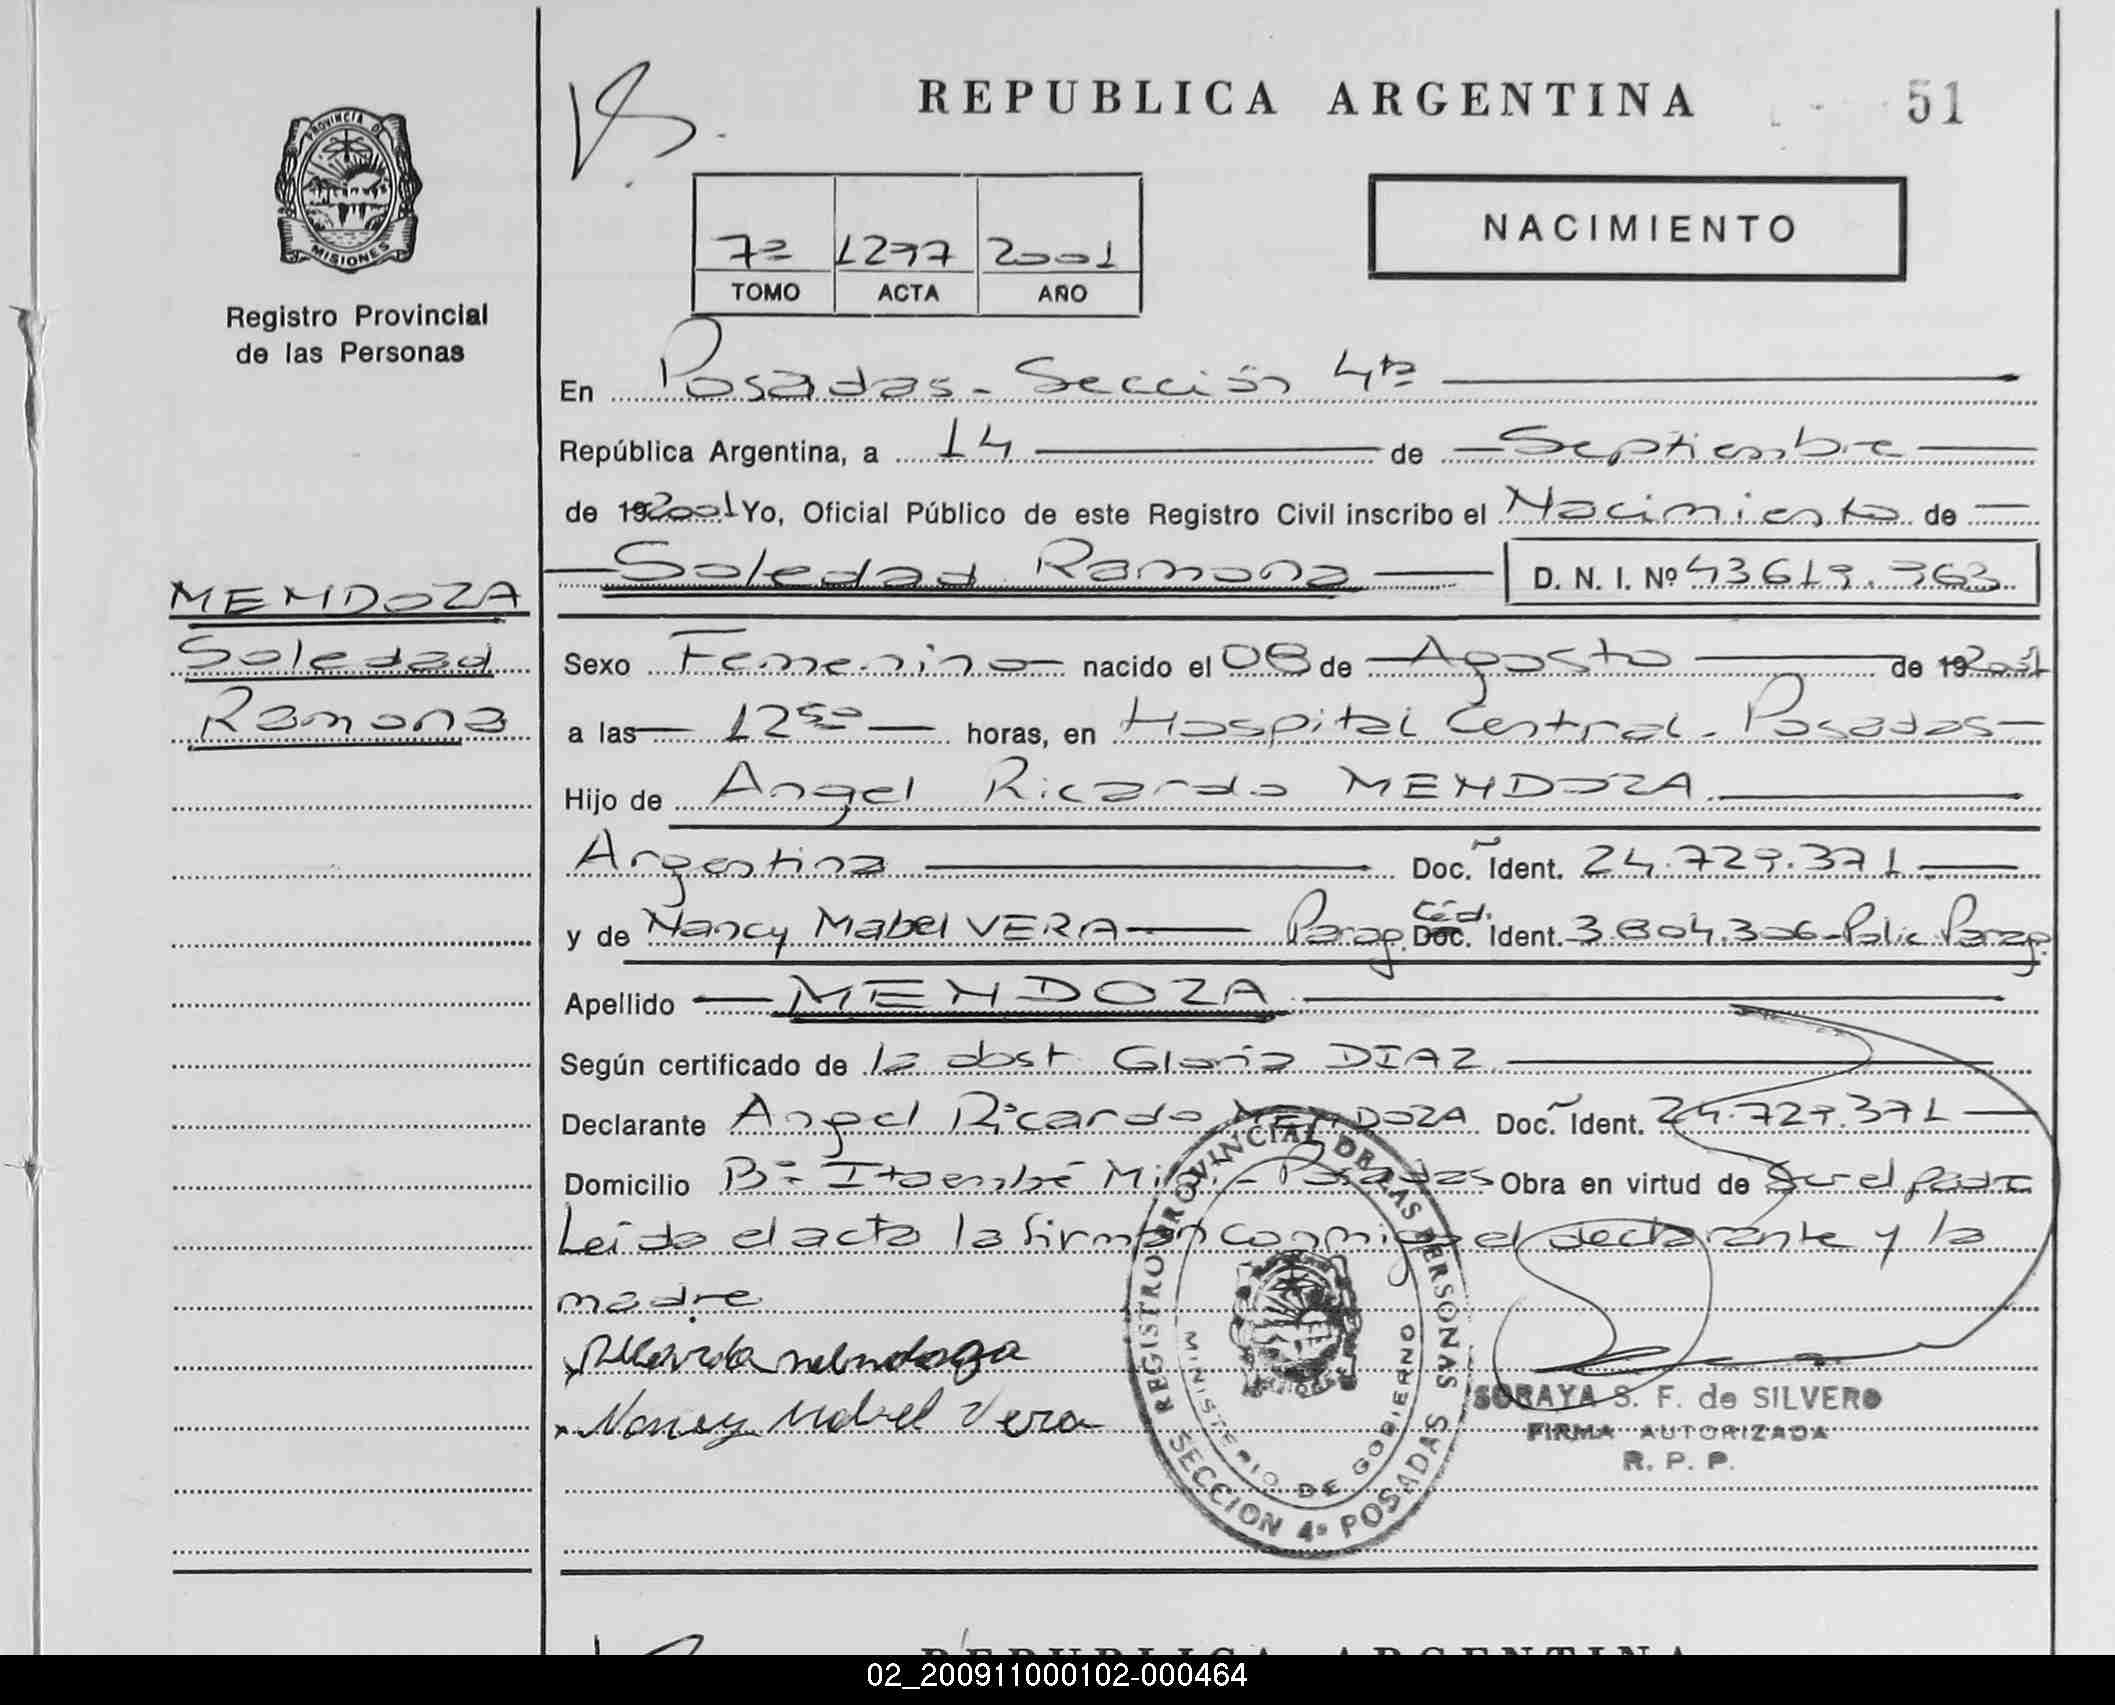 REPUBLICA ARGENTINA
51
PROVINCIA DE
MISIONES
Registro Provincial
de las Personas
7ª 1297 2001
TOMO ACTA AÑO
NACIMIENTO
En Posadas - Sección 4ta
República Argentina, a 14 de Septiembre
de 192001 Yo, Oficial Público de este Registro Civil inscribo el Nacimiento de
Soledad Ramona D. N. I. Nº 43619.363
MENDOZA
Soledad
Ramona
Sexo Femenino nacido el 08 de Agosto de 192001
a las 12 50 horas, en Hospital Central - Posadas
Hijo de Angel Ricardo MENDOZA
Argentina Doc. Ident. 24.729.371
y de Nancy Mabel VERA Parag. Céd. Doc. Ident. 3.804.306 - Polic. Parag.
Apellido MENDOZA
Según certificado de la obst. Gloria DIAZ
Declarante Angel Ricardo MENDOZA Doc. Ident. 24.729.371
Domicilio Bº Itaembé Miní - Posadas Obra en virtud de Ser el padre
Leída el acta la firman conmigo el declarante y la
madre
Ricardo mendoza
Nancy Mabel Vera
REGISTRO PROVINCIAL DE LAS PERSONAS
MINISTERIO DE GOBIERNO
SECCION 4ª POSADAS
SORAYA S. F. de SILVERO
FIRMA AUTORIZADA
R. P. P.
REPUBLICA ARGENTINA
02_200911000102-000464